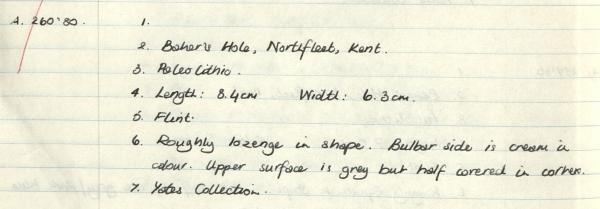 A. 260'80. 1.
2. Baker's Hole, Northfleet, Kent.
3. Paleolithic.
4. Length: 8.4cm Width: 6.3cm.
5. Flint.
6. Roughly lozenge in shape. Bulbar side is cream in
colour. Upper surface is grey but half covered in cortex.
7. Yates Collection.